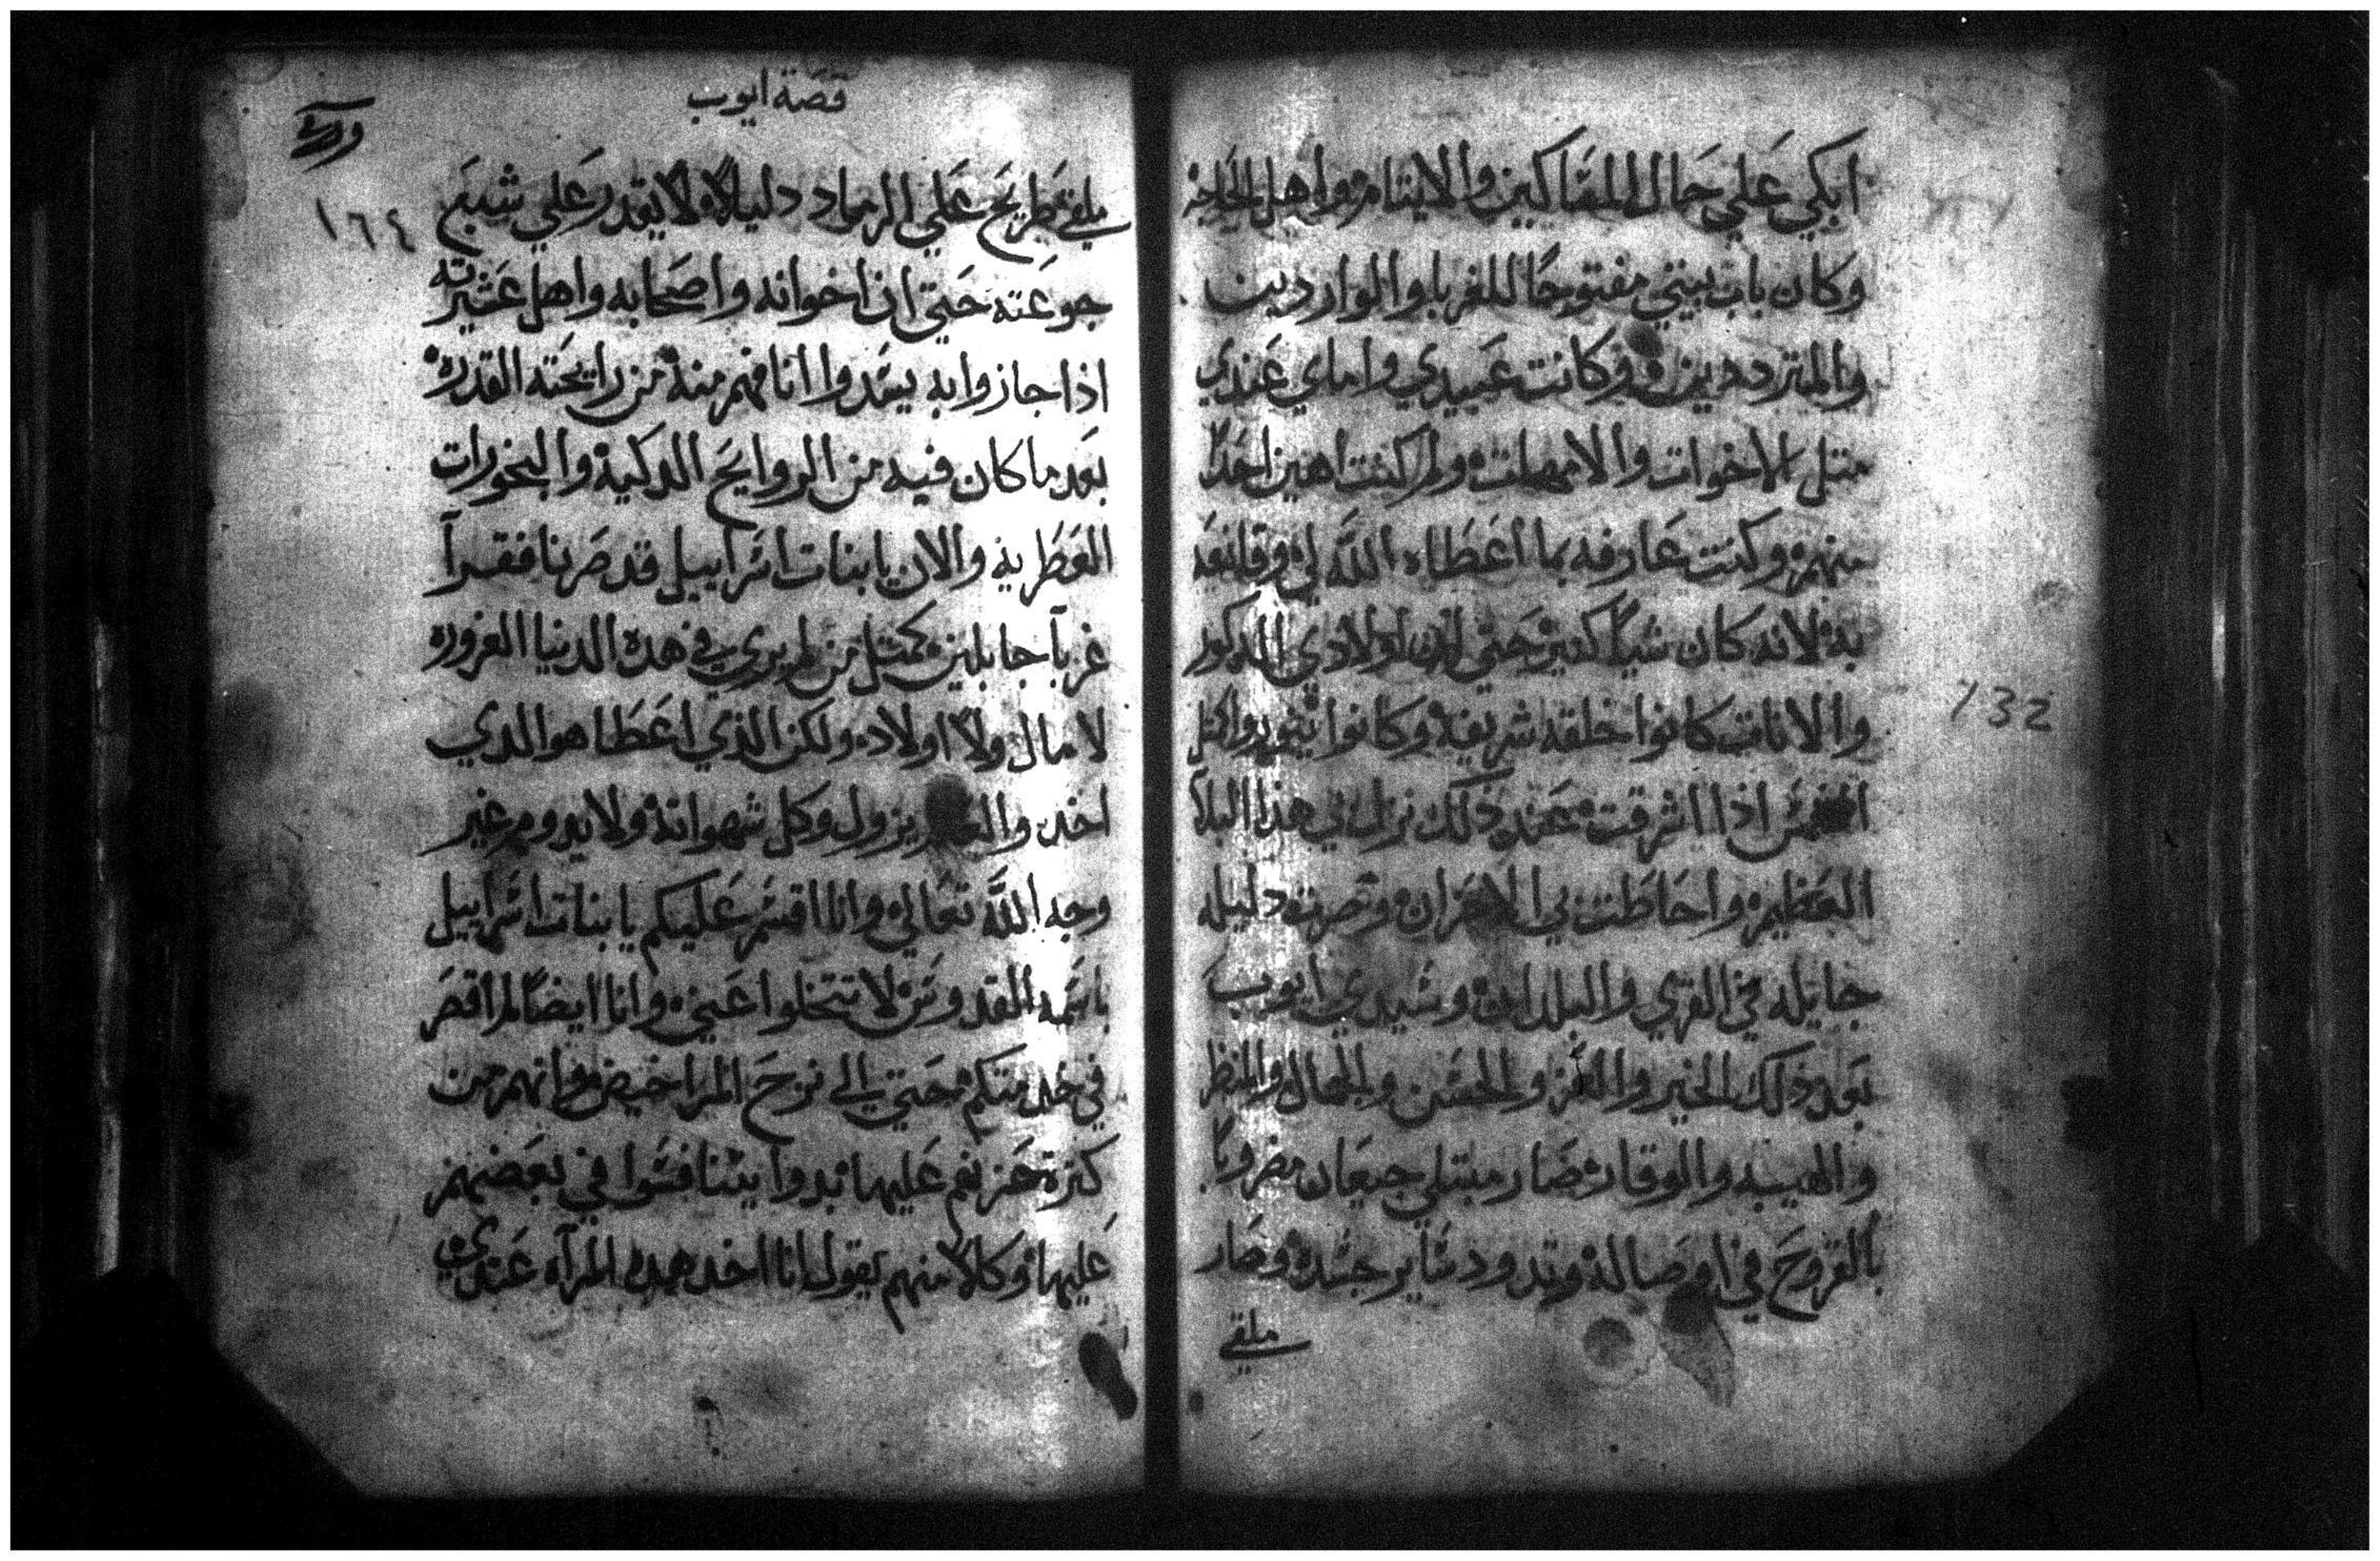 ابكي علي حال المساكين والايتام واهل الحاجه
وكان باب بيتي مفتوحًا للغربا والواردين
والمترددين وكانت عبيدي واماي عندي
متل الاخوات والامهات ولم كنت اهين احدًا
منهم وكنت عارفه بما اعطاه الله لي وقانعه
به لانه كان شياً كتير حتي ان اولادي الدكور
والانات كانوا خلقه شريفه وكانوا كتل
الشمس اذا اشرقت فعند ذلك نزل بي هذا البلآ
العظيم واحاطت بي الاحزان وصرت دليله
جايله في القري والبلدان وسيدي ايوب
بعد ذلك الخير والعز والحسن والجمال والمنظر
والهيبه والوقار صار مبتلي جيعان مضروبًا
بالقروح في اوصاله وتدود ساير جسده وصار
ملقي
132
قصة ايوب
١٦٤
ملقي طريح علي الرماد دليلاً لا يقدر علي شبع
جوعته حتي ان اخوانه واصحابه واهل عشيرته
اذا جازوا به يسدوا انافهم منه من رايحته القدره
بعد ما كان فيه من الروايح الدكية والبخورات
العطرية والان يا بنات اسراييل قد صرنا فقرآ
غربآ جايلين كمتل من لم يري في هده الدنيا الغروره
لا مال ولا اولاد ولكن الذي اعطا هو الدي
اخد يزول وكل شهواته ولا يدوم غير
وجه الله تعالي وانا اقسم عليكم يا بنات اسراييل
باسمه القدوس لا تتخلوا عني وانا ايضًا لم اقصر
في خدمتكم حتي الي نزح المراحيض وانهم من
كترة حزنهم عليها بدوا يتنافسوا في بعضهم
عليها وكلاً منهم يقول انا اخد هده المرآه عندي